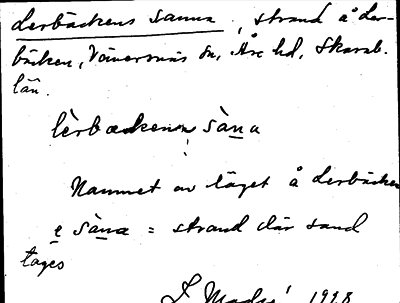 Lerbäckens sanna, strand å Ler-
bäcken, Vänersnäs sn, Åse hd, Skarab.
län.
lèrbækenən sàna
Namnet av läget å Lerbäcken
e sàna = strand där sand
tages
1928